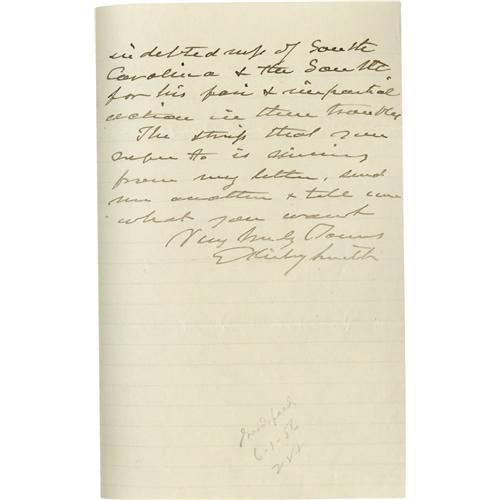 indebtedness of South
Carolina & the South
for his fair & impartial
action in their troubles
The strip that you
refer to is missing
from my letter, send
me another & tell me
what you want
Very truly Yours
E Kirby Smith
6-1-56